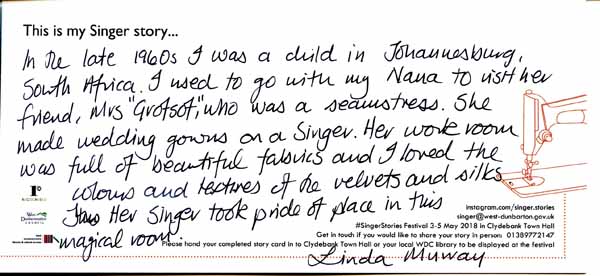 This is my Singer story...
In the late 1960s I was a child in Johannesburg,
South Africa. I used to go with my Nana to visit her
friend, Mrs "Grotsot," who was a seamstress. She
made wedding gowns on a Singer. Her work room
was full of beautiful fabrics and I loved the
colours and textures of the velvets and silks
Her Singer took pride of place in this
magical room.
Linda Murray
instagram.com/singer.stories
singer@west-dunbarton.gov.uk
#SingerStories Festival 3-5 May 2018 in Clydebank Town Hall
Get in touch if you would like to share your story in person: 01389772147
Please hand your completed story card in to Clydebank Town Hall or your local WDC library to be displayed at the festival